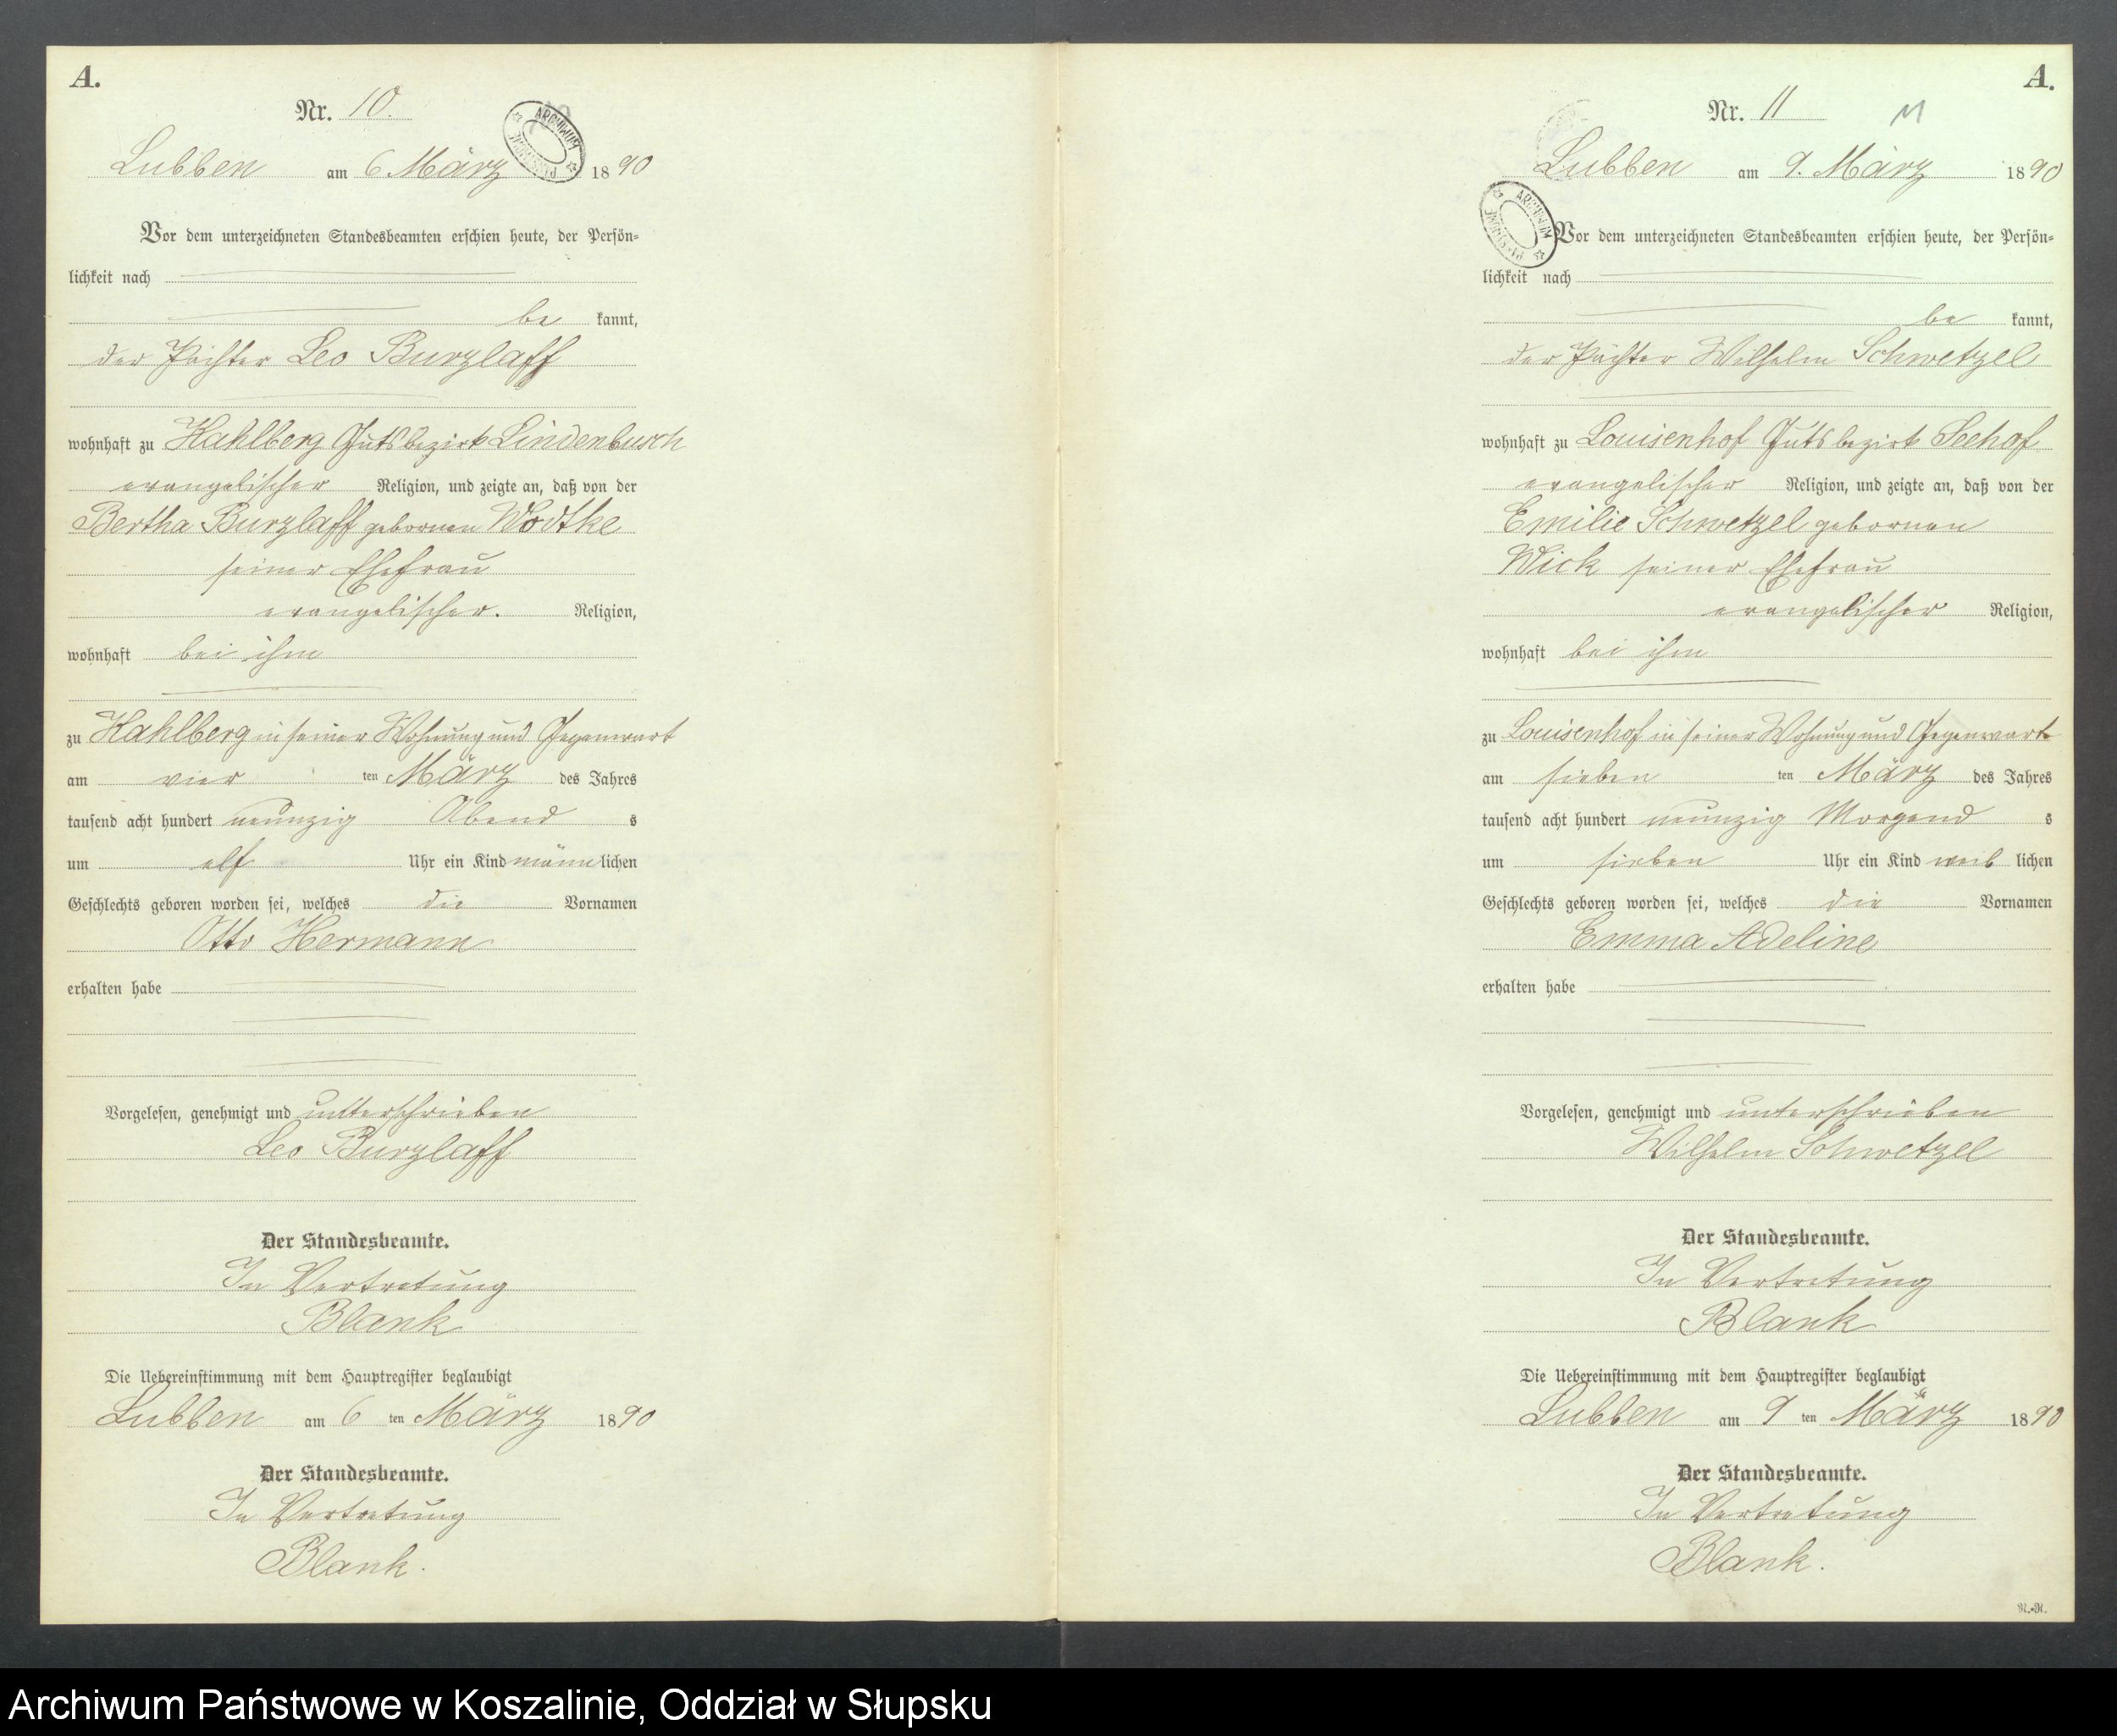 A.
Nr. 10.
Lubben am 6 März 1890
Vor dem unterzeichneten Standesbeamten erschien heute, der Persön=
lichkeit nach
be kannt,
der Pächter Leo Burzlaff
wohnhaft zu Kahlberg Gutsbezirk Lindenbusch
evangelischer Religion, und zeigte an, daß von der
Bertha Burzlaff gebornen Wodtke
seiner Ehefrau
evangelischer. Religion,
wohnhaft bei ihm
zu Kahlberg in seiner Wohnung und Gegenwart
am vier ten März des Jahres
tausend acht hundert neunzig Abend s
um elf Uhr ein Kind männlichen
Geschlechts geboren worden sei, welches die Vornamen
Otto Hermann
erhalten habe
Vorgelesen, genehmigt und unterschrieben
Leo Burzlaff
Der Standesbeamte.
In Vertretung
Blank
Die Uebereinstimmung mit dem Hauptregister beglaubigt
Lubben am 6 ten März 1890
Der Standesbeamte.
In Vertretung
Blank.
A.
Nr. 11
11
Lubben am 9. März 1890
ARCHIWUM
Vor dem unterzeichneten Standesbeamten erschien heute, der Persön=
lichkeit nach
be kannt,
der Pächter Wilhelm Schwetzel
wohnhaft zu Louisenhof Gutsbezirk Seehof
evangelischer Religion, und zeigte an, daß von der
Emilie Schwetzel gebornen
Wick seiner Ehefrau
evangelischer Religion,
wohnhaft bei ihm
zu Louisenhof in seiner Wohnung und Gegenwart
am sieben ten März des Jahres
tausend acht hundert neunzig Morgend s
um sieben Uhr ein Kind weib lichen
Geschlechts geboren worden sei, welches die Vornamen
Emma Adeline
erhalten habe
Vorgelesen, genehmigt und unterschrieben
Wilhelm Schwetzel
Der Standesbeamte.
In Vertretung
Blank
Die Uebereinstimmung mit dem Hauptregister beglaubigt
Lubben am 9 ten März 1890
Der Standesbeamte.
In Vertretung
Blank.
R.=R.
Archiwum Państwowe w Koszalinie, Oddział w Słupsku